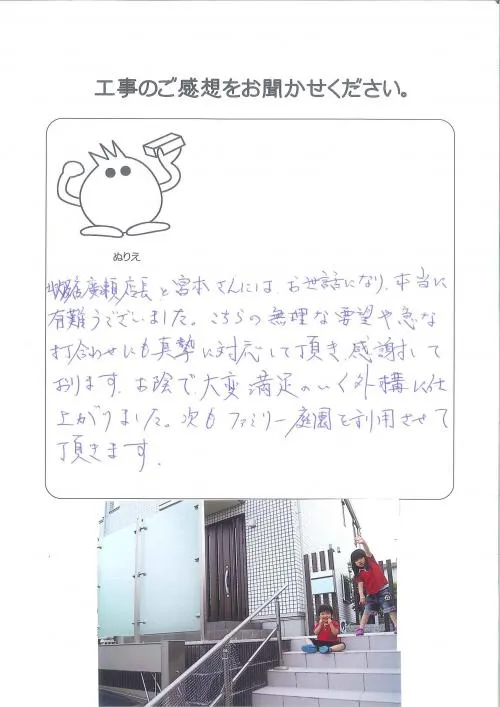 工事のご感想をお聞かせください。
ぬりえ
店廣瀬店長と宮本さんには お世話になり、本当に
有難うございました。こちらの無理な要望や急な
打合わせにも真摯に対応して頂き 感謝して
おります。お陰で大変満足のいく外構に仕
上がりました。次も ファミリー庭園を利用させて
頂きます。